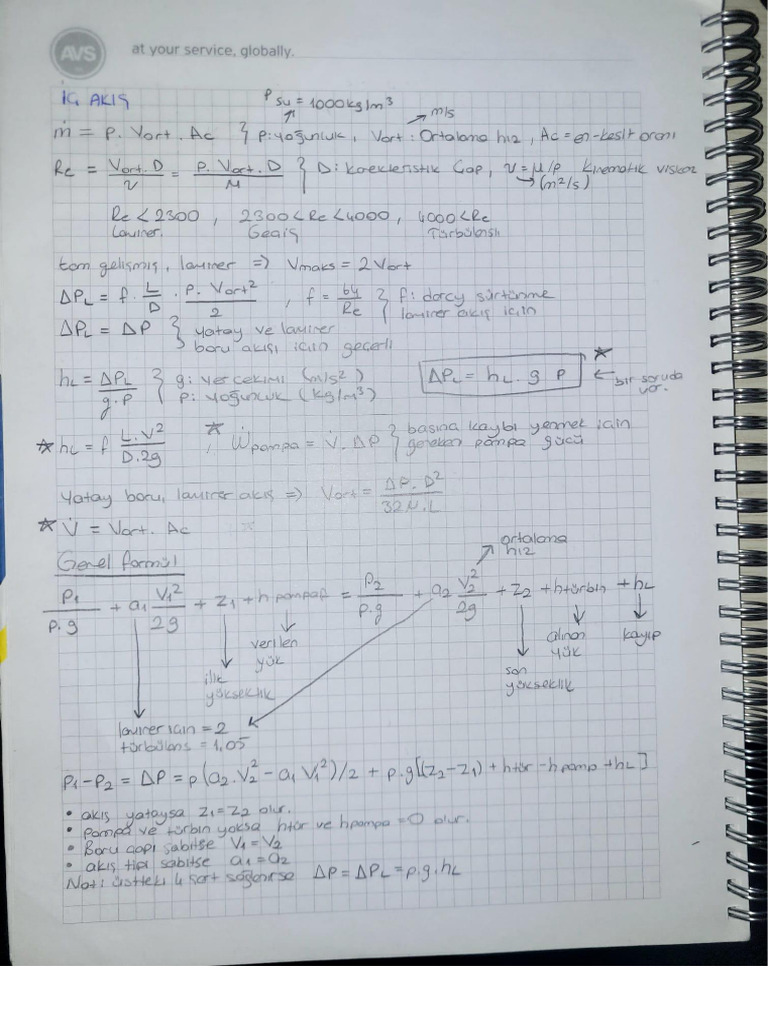 AVS at your service, globally.
İÇ AKIŞ
ρ su = 1000 kg/m³
m/s
ṁ = ρ. Vort. Ac } ρ: yoğunluk, Vort: Ortalama hız, Ac = en-kesit oranı
Re = Vort. D / ν = ρ. Vort. D / μ } D: karekteristik Çap, ν = μ/ρ kinematik viskoz
(m²/s)
Re < 2300 , 2300 < Re < 4000 , 4000 < Re
Laminer. Geçiş Türbülanslı
tam gelişmiş, laminer => Vmaks = 2 Vort
ΔPL = f. L/D . ρ. Vort²/2 , f = 64/Re } f: darcy sürtünme
laminer akış için
ΔPL = ΔP } yatay ve laminer
boru akışı için geçerli
hL = ΔPL / g.ρ } g: yer çekimi (m/s²)
ρ: yoğunluk (kg/m³)
ΔPL = hL. g ρ ← bir soruda var.
hL = f L.V² / D.2g , Ẇpompa = V̇. ΔP } basınç kaybı yenmek için
gereken pompa gücü
Yatay boru, laminer akış => Vort = ΔP. D² / 32μ.L
V̇ = Vort. Ac
Genel formül
ortalama
hız
P1/ρ.g + a1 V1²/2g + Z1 + h pompa = P2/ρ.g + a2 V2²/2g + Z2 + htürbin + hL
verilen
yük
alınan
yük
kayıp
ilk
yükseklik
son
yükseklik
laminer için = 2
türbülans = 1,05
P1-P2 = ΔP = ρ(a2.V2² - a1 V1²)/2 + ρ.g[(Z2-Z1) + htür - hpomp + hL]
• akış yataysa Z1=Z2 olur.
• pompa ve türbin yoksa htür ve hpompa = 0 olur.
• Boru çapı sabitse V1=V2
• akış tipi sabitse a1=a2
Not: üstteki 4 şart sağlanırsa ΔP = ΔPL = ρ.g.hL